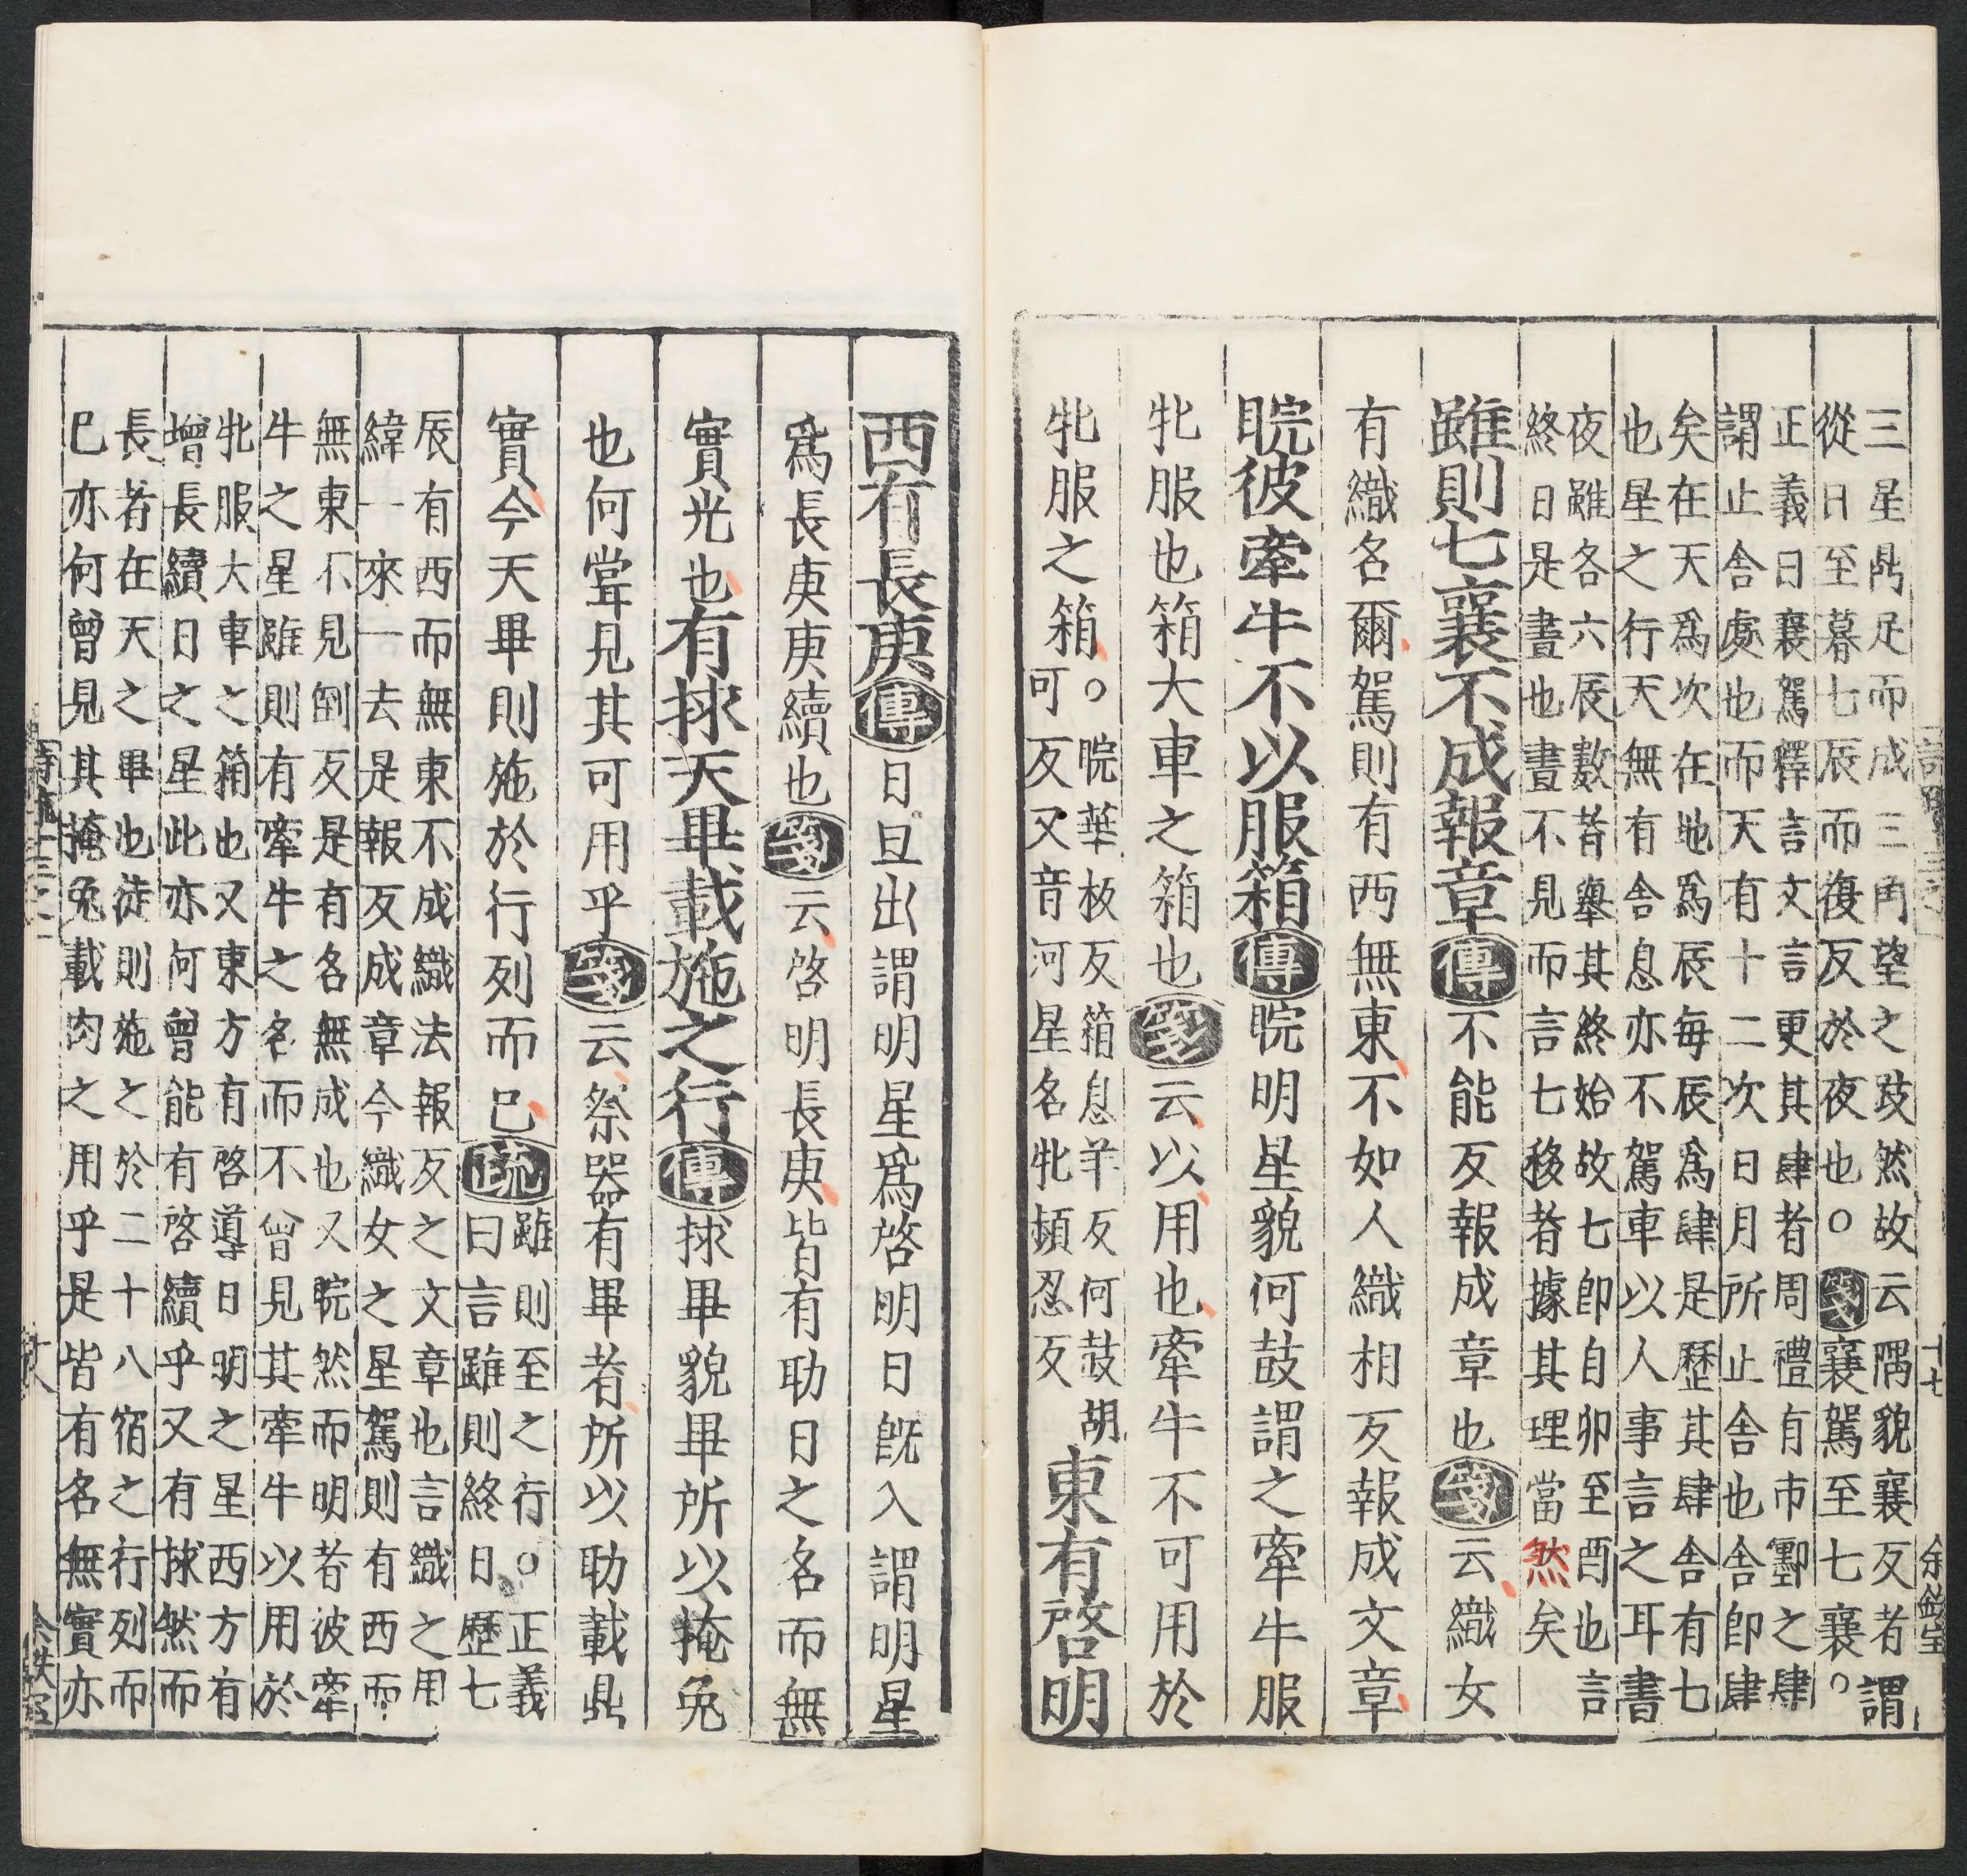 三星鼎足而成三角望之跂然故云隅貌襄反者謂
從日至暮七辰而復反於夜也○箋襄駕至七襄○
正義曰襄駕釋言文言更其肆者周禮有市鄽之肆
謂止舍處也而天有十二次日月所止舍也舍即肆
矣在天爲次在地爲辰每辰爲肆是歷其肆舍有七
也星之行天無有舍息亦不駕車以人事言之耳書
夜雖各六辰數者舉其終始故七即自卯至酉也言
終日是晝也晝不見而言七移者據其理當然矣
雖則七襄不成報章傳不能反報成章也箋云織女
有織名爾駕則有西無東不如人織相反報成文章
睆彼牽牛不以服箱傳睆明星貌何鼓謂之牽牛服
牝服也箱大車之箱也箋云以用也牽牛不可用於
牝服之箱○睆華板反箱息羊反何鼓胡
可反又音河星名牝頻忍反東有啓明
十七
西有長庚傳日旦出謂明星爲啓明日既入謂明星
爲長庚庚續也箋云啓明長庚皆有助日之名而無
實光也有捄天畢載施之行傳捄畢貌畢所以掩兔
也何嘗見其可用乎箋云祭器有畢者所以助載鼎
實今天畢則施於行列而已疏雖則至之行○正義
曰言雖則終日歷七
辰有西而無東不成織法報反之文章也言織之用
緯一來一去是報反成章今織女之星駕則有西而
無東不見倒反是有名無成也又睆然而明者彼牽
牛之星雖則有牽牛之名而不曾見其牽牛以用於
牝服大車之箱也又東方有啓導日明之星西方有
增長續日之星此亦何曾能有啓續乎又有捄然而
長者在天之畢也徒則施之於二十八宿之行列而
已亦何曾見其掩兔載肉之用乎是皆有名無實亦